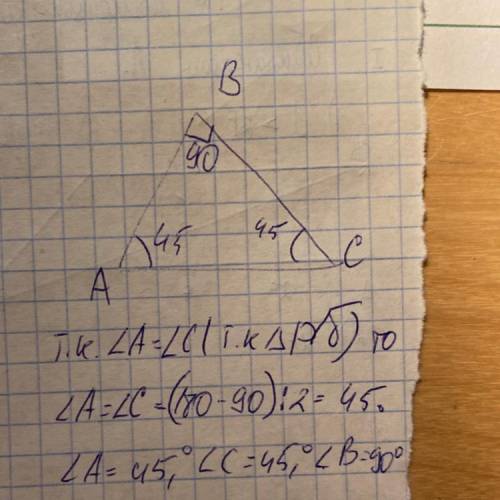 B
90
45
45
A
C
Т.к. ∠A=∠C (т.к Δ р/б) то
∠A=∠C=(180-90):2= 45.
∠A= 45,° ∠C=45,° ∠B=90°